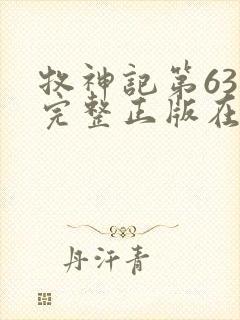 牧神記第63
完整正版在
丹汗青